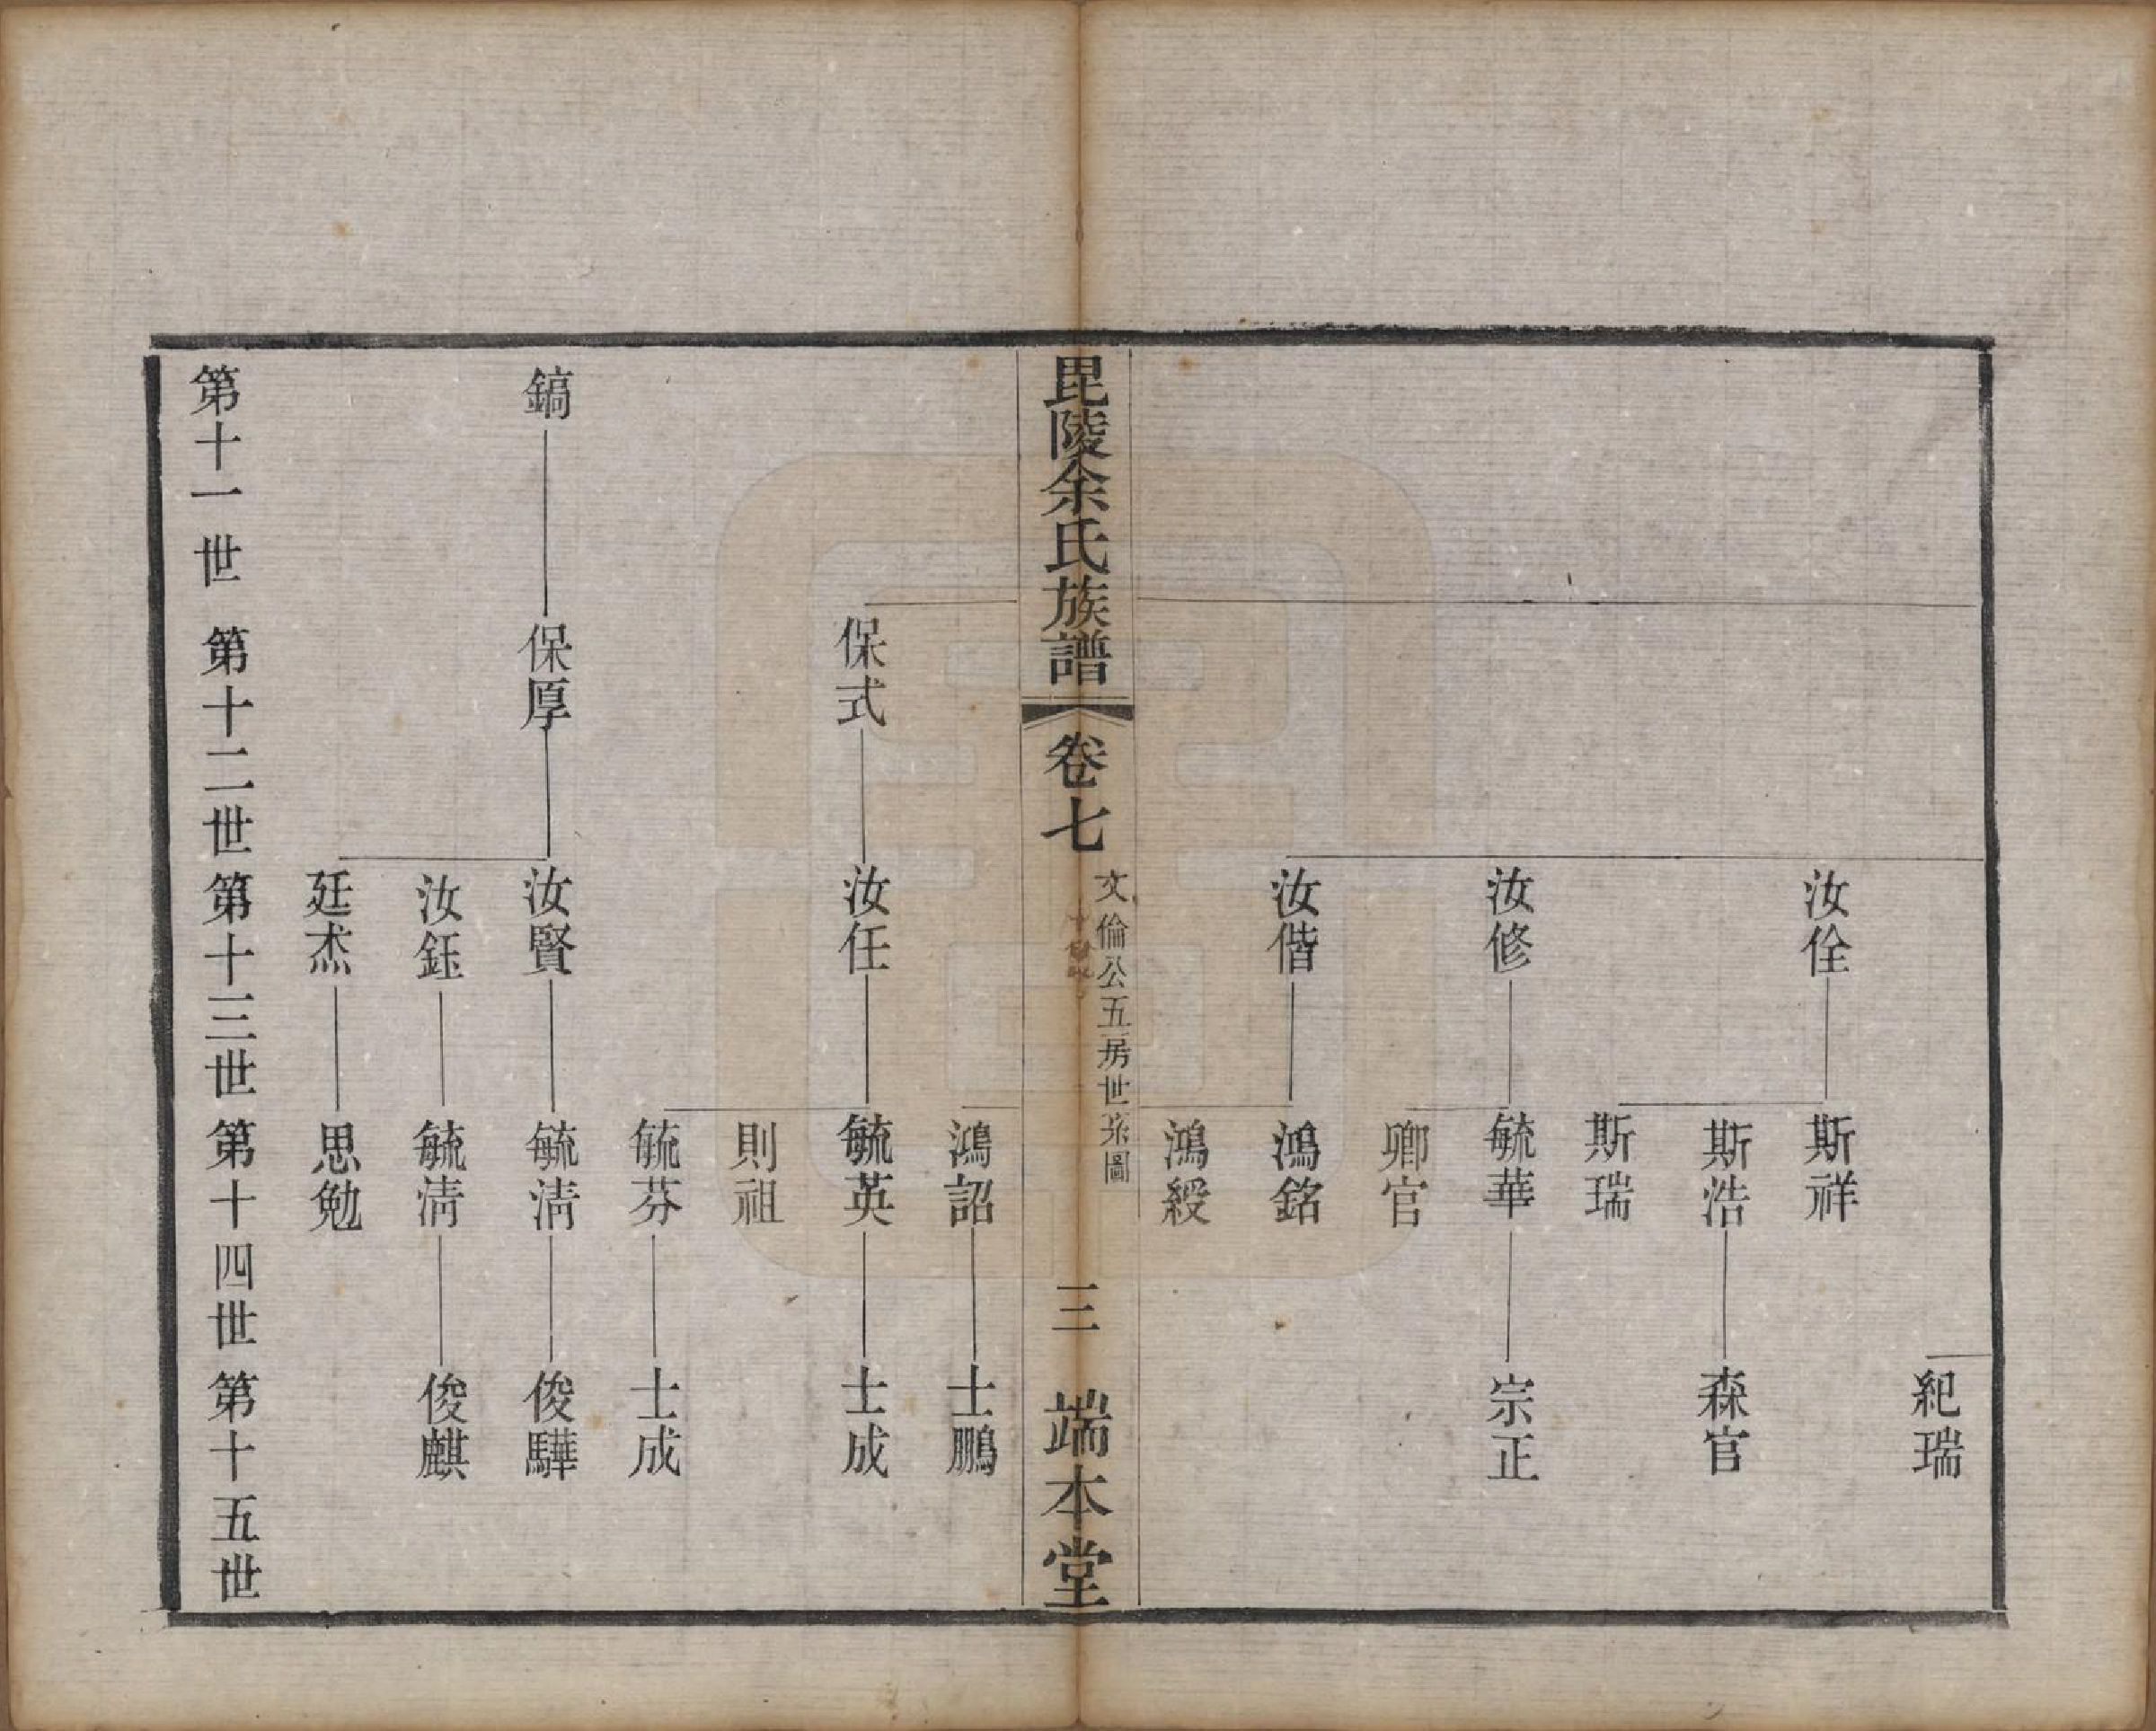 紀瑞
汝佺
斯祥
斯浩
森官
斯瑞
汝修
毓華
宗正
卿官
汝偕
鴻銘
鴻綬
毘陵余氏族譜
卷七
文倫公五房世系圖
三
端本堂
鴻詔
士鵬
保式
汝任
毓英
士成
則祖
毓芬
士成
鎬
保厚
汝賢
毓淸
俊驊
汝鈺
毓淸
俊麒
廷杰
思勉
第十一世
第十二世
第十三世
第十四世
第十五世